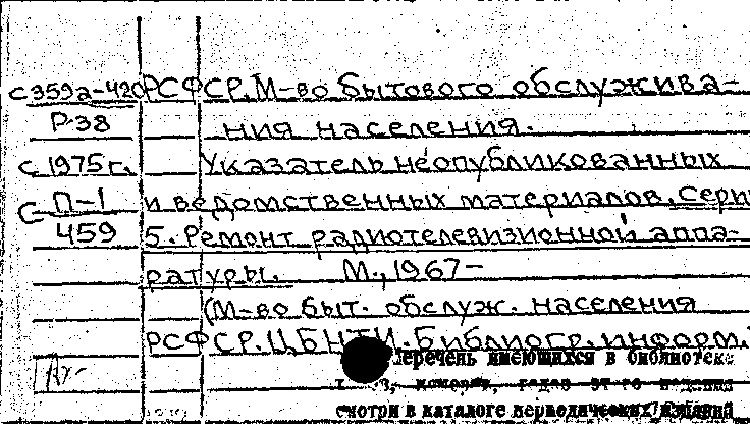 С359а-420 РСФСР. М-во бытового обслужива-
Р-38 ния населения.
с 1975 г. Указатель неопубликованных
С П-1 и ведомственных материалов. Серия
459 5. Ремонт радиотелевизионной аппа-
ратуры. М., 1967-
(М-во быт. обслуж. населения
РСФСР. ЦБНТИ. Библиогр. информ.
Перечень имеющихся в библиотеке
смотри в каталоге периодических изданий